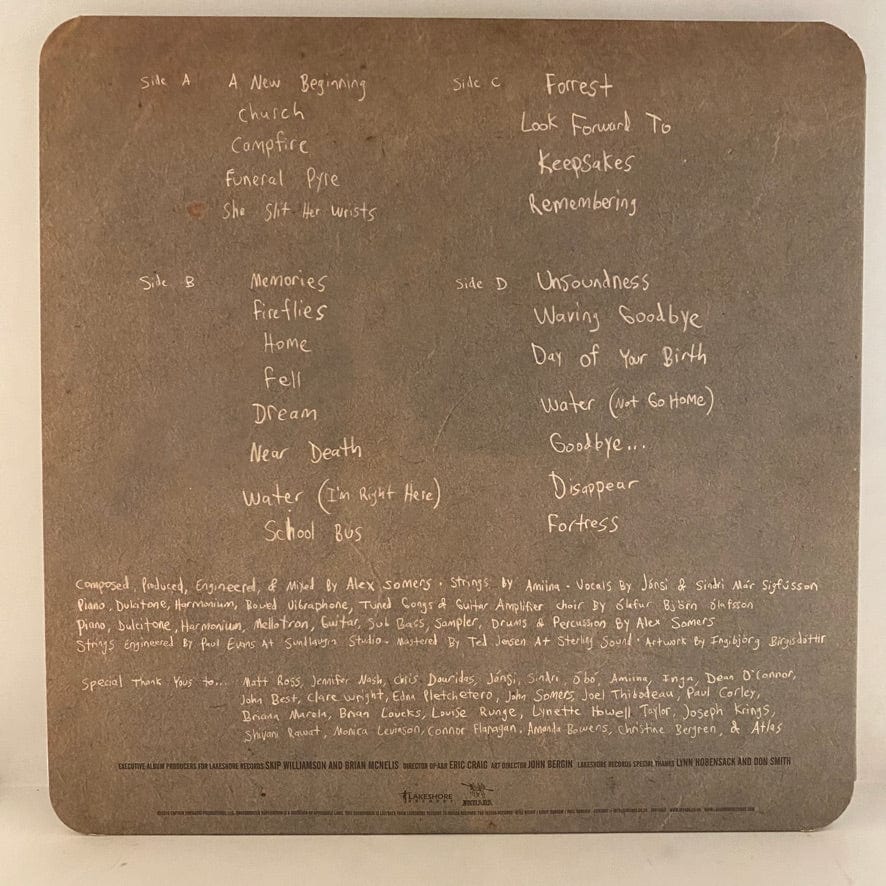 Side A A New Beginning
Church
Campfire
Funeral Pyre
She Slit Her Wrists
Side B Memories
Fireflies
Home
Fell
Dream
Near Death
Water (I'm Right Here)
School Bus
Side C Forrest
Look Forward To
Keepsakes
Remembering
Side D Unsoundness
Waving Goodbye
Day of Your Birth
Water (Not Go Home)
Goodbye...
Disappear
Fortress
Composed, Produced, Engineered, & Mixed By Alex Somers · Strings by Amiina · Vocals By Jónsi & Sindri Már Sigfússon
Piano, Dulcitone, Harmonium, Bowed Vibraphone, Tuned Gongs & Guitar Amplifier choir By Ólafur Björn Ólafsson
Piano, Dulcitone, Harmonium, Mellotron, Guitar, Sub Bass, Sampler, Drums & Percussion By Alex Somers
Strings Engineered By Paul Evans At Sundlaugin Studio · Mastered By Ted Jensen At Sterling Sound · Artwork By Ingibjörg Birgisdóttir
Special Thank Yous to... Matt Ross, Jennifer Nash, Chris Douridas, Jónsi, Sindri, Óbó, Amiina, Inga, Dean O'Connor,
John Best, Clare Wright, Edna Pletchetero, John Somers, Joel Thibodeau, Paul Corley,
Briana Marela, Brian Loucks, Louise Runge, Lynette Howell Taylor, Joseph Krings,
Shivani Rawat, Monica Levinson, Connor Flanagan, Amanda Bowens, Christine Bergren, & Atlas
EXECUTIVE ALBUM PRODUCERS FOR LAKESHORE RECORDS SKIP WILLIAMSON AND BRIAN MCNELIS DIRECTOR OF A&R ERIC CRAIG ART DIRECTOR JOHN BERGIN LAKESHORE RECORDS SPECIAL THANKS LYNN HOBENSACK AND DON SMITH
LAKESHORE
RECORDS